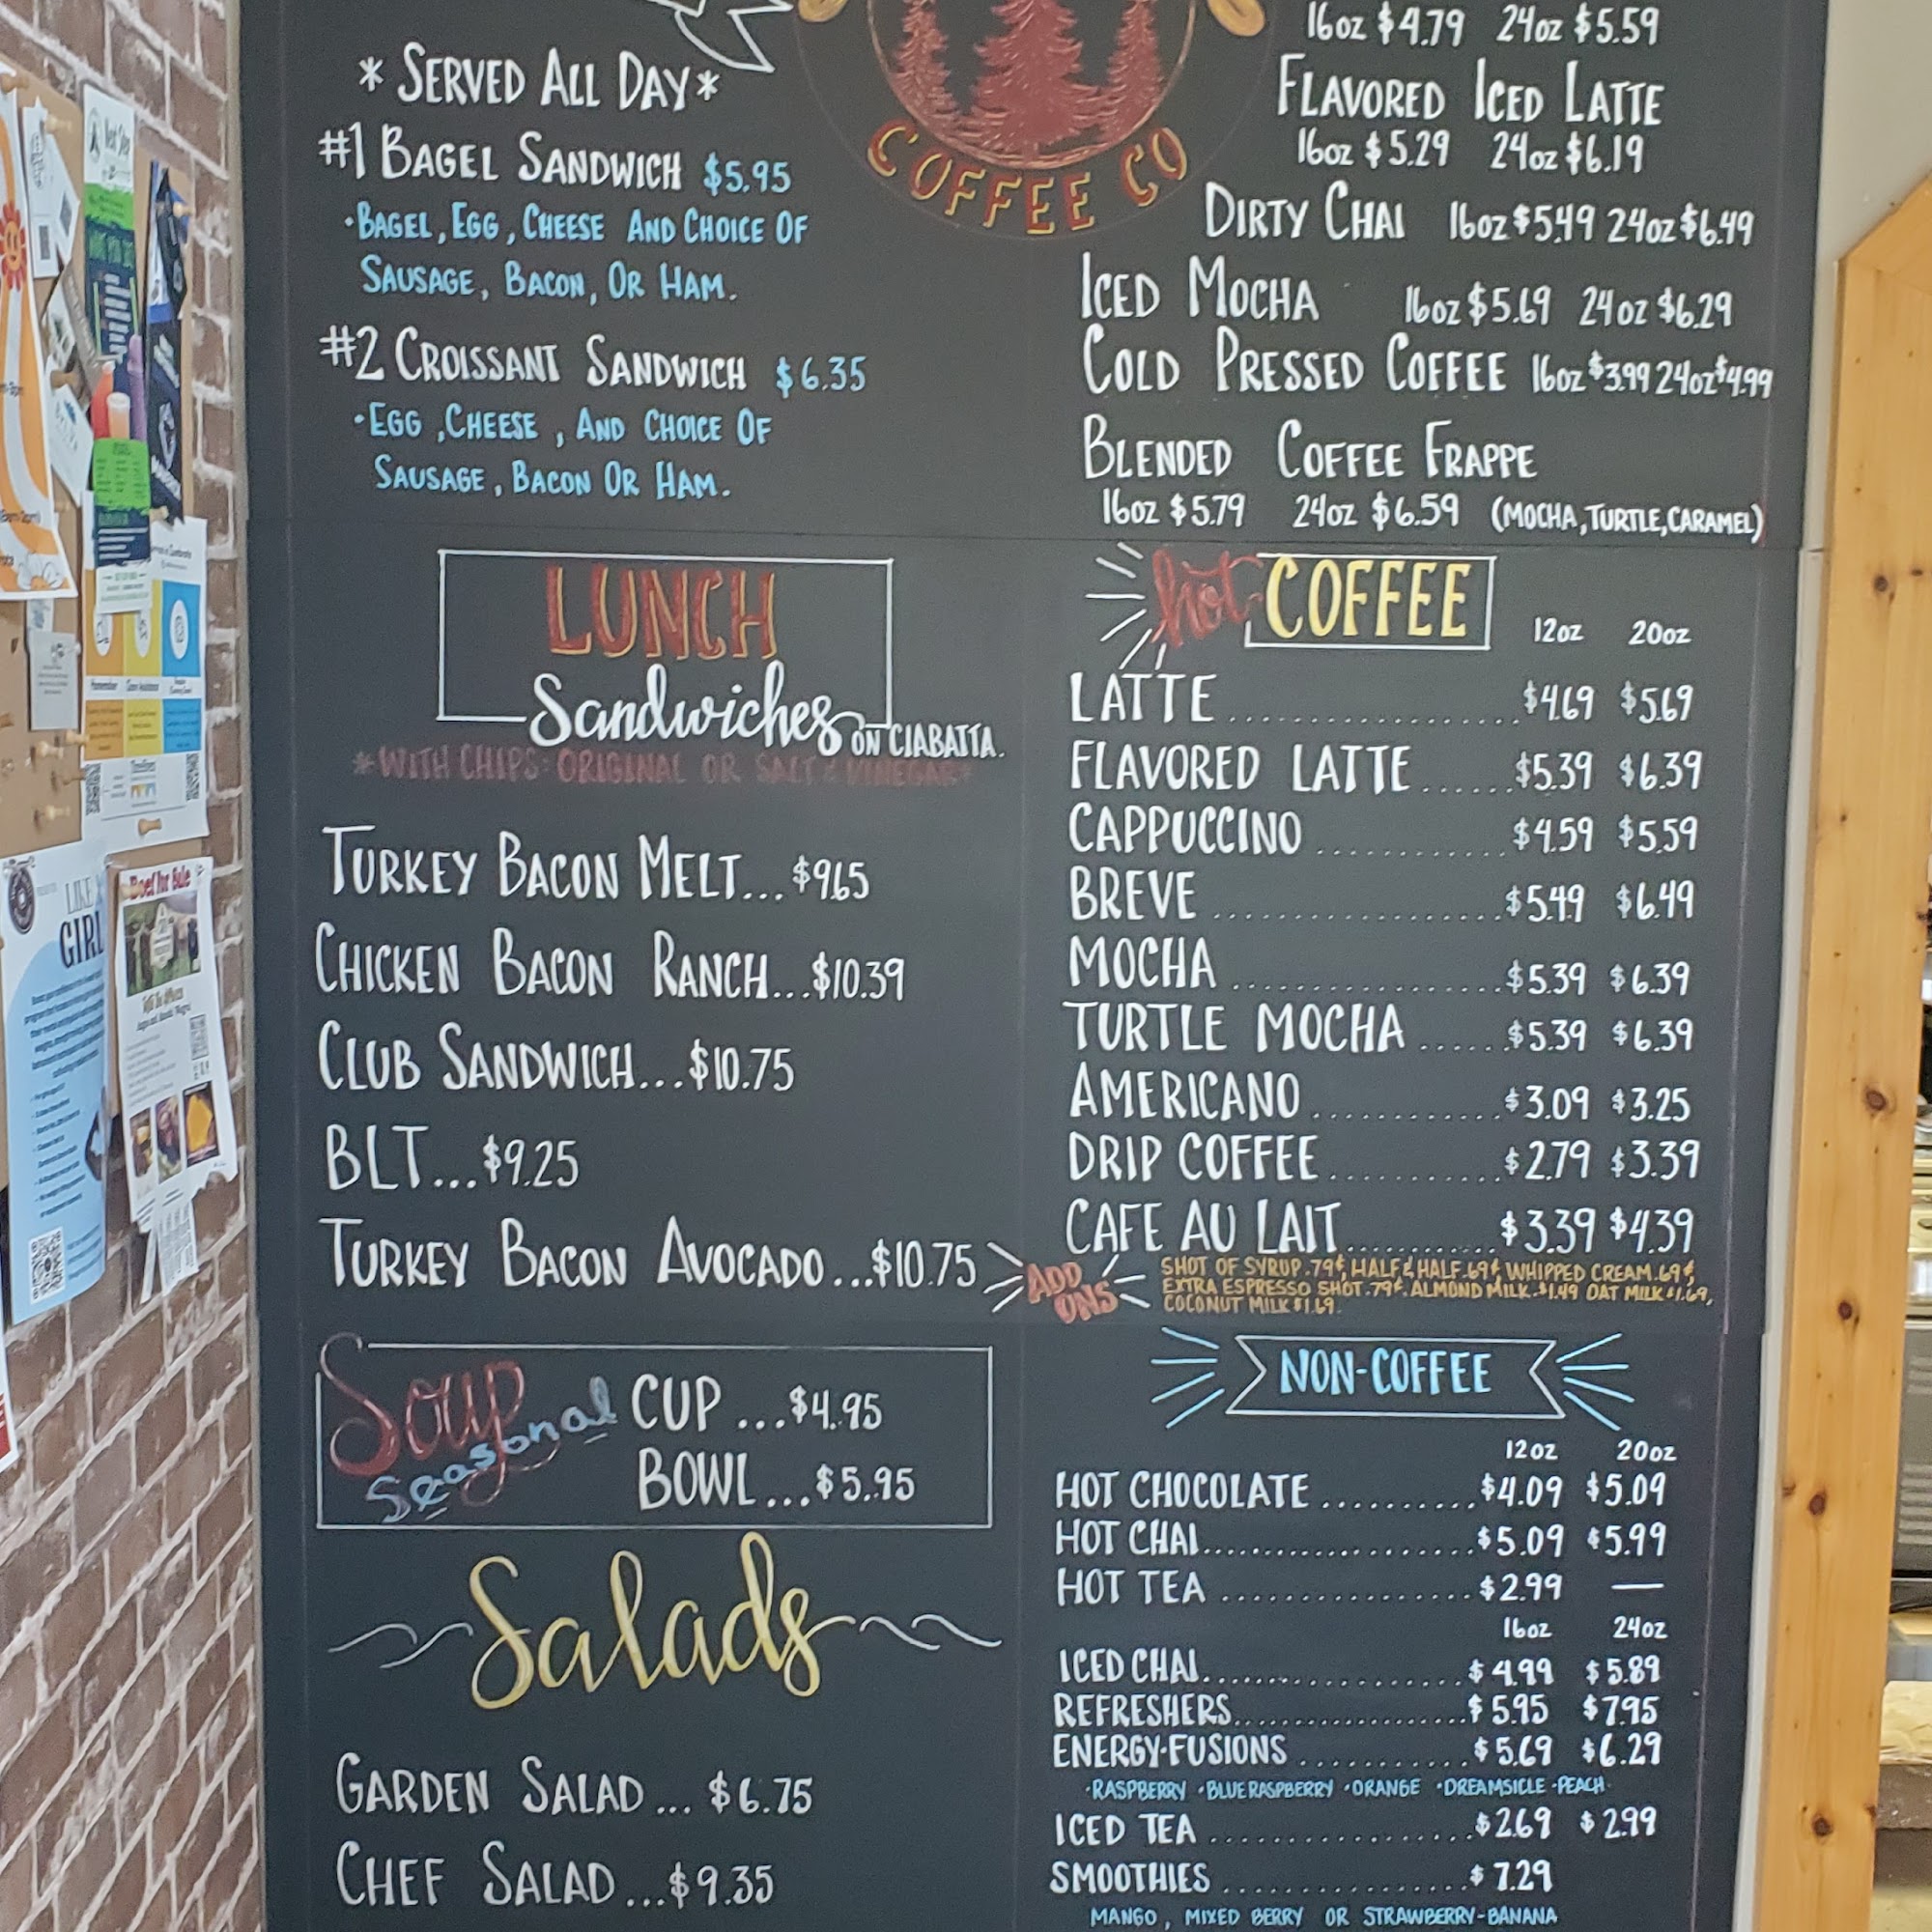 * SERVED ALL DAY *
#1 BAGEL SANDWICH $5.95
• BAGEL, EGG, CHEESE AND CHOICE OF
SAUSAGE, BACON, OR HAM.
#2 CROISSANT SANDWICH $6.35
• EGG, CHEESE, AND CHOICE OF
SAUSAGE, BACON OR HAM.
COFFEE CO
16oz $4.79 24oz $5.59
FLAVORED ICED LATTE
16oz $5.29 24oz $6.19
DIRTY CHAI 16oz $5.49 24oz $6.49
ICED MOCHA 16oz $5.69 24oz $6.29
COLD PRESSED COFFEE 16oz $3.99 24oz $4.99
BLENDED COFFEE FRAPPE
16oz $5.79 24oz $6.59 (MOCHA, TURTLE, CARAMEL)
LUNCH
Sandwiches ON CIABATTA.
*WITH CHIPS: ORIGINAL OR SALT & VINEGAR*
TURKEY BACON MELT...$9.65
CHICKEN BACON RANCH...$10.39
CLUB SANDWICH...$10.75
BLT...$9.25
TURKEY BACON AVOCADO...$10.75
hot COFFEE 12oz 20oz
LATTE $4.69 $5.69
FLAVORED LATTE $5.39 $6.39
CAPPUCCINO $4.59 $5.59
BREVE $5.49 $6.49
MOCHA $5.39 $6.39
TURTLE MOCHA $5.39 $6.39
AMERICANO $3.09 $3.25
DRIP COFFEE $2.79 $3.39
CAFE AU LAIT $3.39 $4.39
ADD ONS
SHOT OF SYRUP .79¢, HALF & HALF .69¢, WHIPPED CREAM .69¢,
EXTRA ESPRESSO SHOT .79¢. ALMOND MILK $1.49 OAT MILK $1.69,
COCONUT MILK $1.69.
Soup Seasonal
CUP ...$4.95
BOWL ...$5.95
Salads
GARDEN SALAD ... $6.75
CHEF SALAD ...$9.35
NON-COFFEE
12oz 20oz
HOT CHOCOLATE $4.09 $5.09
HOT CHAI $5.09 $5.99
HOT TEA $2.99 —
16oz 24oz
ICED CHAI $4.99 $5.89
REFRESHERS $5.95 $7.95
ENERGY•FUSIONS $5.69 $6.29
•RASPBERRY •BLUE RASPBERRY •ORANGE •DREAMSICLE •PEACH
ICED TEA $2.69 $2.99
SMOOTHIES $7.29
MANGO, MIXED BERRY OR STRAWBERRY-BANANA
LIKE A
GIRL
Beef for Sale